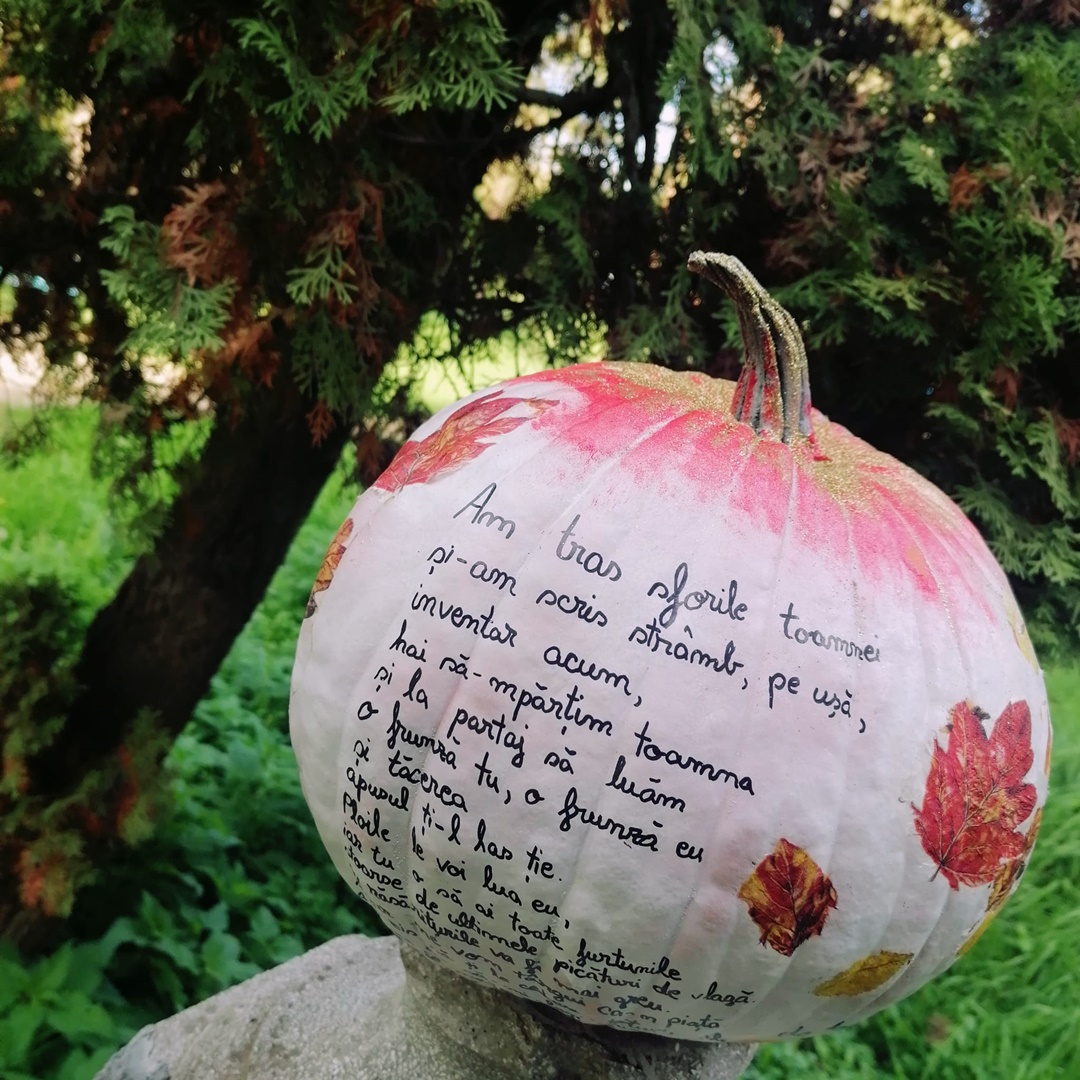 Am tras sforile toamnei
și-am scris strâmb, pe ușă,
inventar acum,
hai să-mpărțim toamna
și la partaj să luăm
o frunză tu, o frunză eu
și tăcerea
apusul ți-l las ție.
Ploile le voi lua eu,
iar tu o să ai toate furtunile
stoarse de ultimele picături de vlagă.
răsăriturile va fi mai greu.
vom ca-n piață